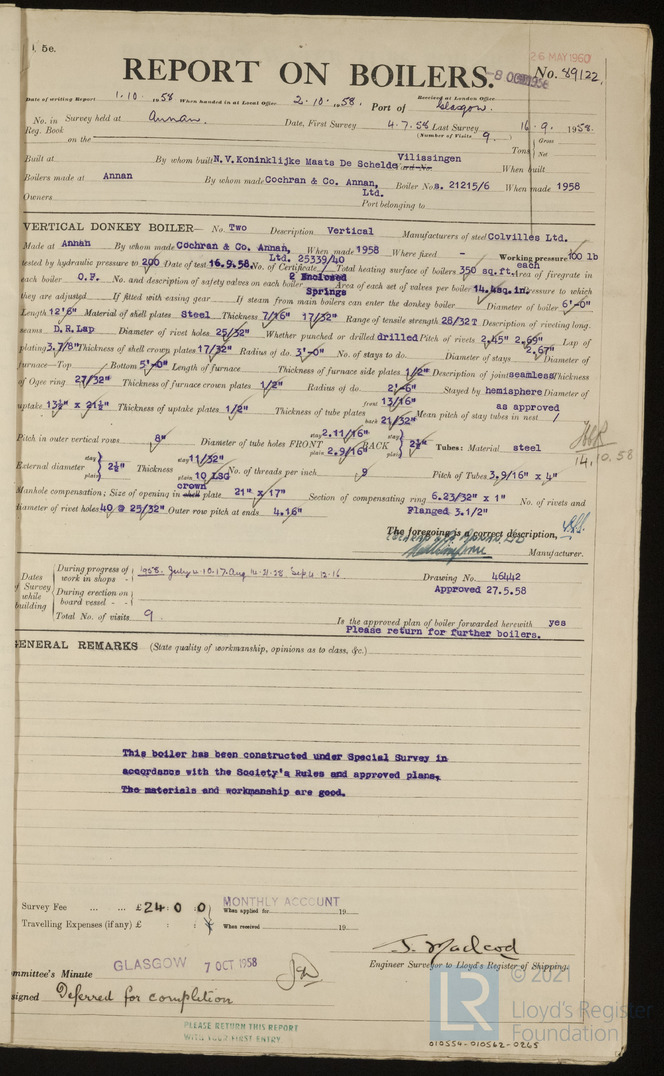 5e.
26 MAY 1960
REPORT ON BOILERS.
No. 89122.
Date of writing Report 1.10. 1958 When handed in at Local Office 2.10. 1958. Port of Glasgow.
Received at London Office
No. in Survey held at Annan. Date, First Survey 4.7.58 Last Survey 16.9. 1958.
Reg. Book
on the (Number of Visits 9. Tons Gross
Net
Built at By whom built N.V. Koninklijke Maats De Schelde Vlissingen Yard No. When built
Boilers made at Annan By whom made Cochran & Co. Annan, Ltd. Boiler No. s. 21215/6 When made 1958
Owners Port belonging to
VERTICAL DONKEY BOILER— No. Two Description Vertical Manufacturers of steel Colvilles Ltd.
Made at Annan By whom made Cochran & Co. Annan, Ltd. When made 1958 Where fixed - Working pressure 100 lb
tested by hydraulic pressure to 200 Date of test 16.9.58. No. of Certificate 25339/40 Total heating surface of boilers 350 sq.ft. each Area of firegrate in
each boiler O.F. No. and description of safety valves on each boiler 2 Enclosed Springs Area of each set of valves per boiler 14.4sq.in. Pressure to which
they are adjusted If fitted with easing gear If steam from main boilers can enter the donkey boiler Diameter of boiler 6'-0"
Length 12'6" Material of shell plates Steel Thickness 7/16" 17/32" Range of tensile strength 28/32T Description of riveting long.
seams D.R.Lap Diameter of rivet holes 25/32" Whether punched or drilled drilled Pitch of rivets 2.45" 2.69" 2.67" Lap of
plating 3.7/8" Thickness of shell crown plates 17/32" Radius of do. 3'-0" No. of stays to do. Diameter of stays Diameter of
furnace—Top Bottom 5'-0" Length of furnace Thickness of furnace side plates 1/2" Description of joint seamless Thickness
of Ogee ring 27/32" Thickness of furnace crown plates 1/2" Radius of do. 2'-6" Stayed by hemisphere Diameter of
uptake 13½" x 21½" Thickness of uptake plates 1/2" Thickness of tube plates front 13/16" back 21/32" Mean pitch of stay tubes in nest as approved
Pitch in outer vertical rows 8" Diameter of tube holes FRONT stay 2.11/16" plain 2.9/16" BACK stay plain 2½" Tubes: Material steel
14.10.58
External diameter stay plain 2½" Thickness stay 11/32" plain 10 LSG No. of threads per inch 9 Pitch of Tubes 3.9/16" x 4"
Manhole compensation; Size of opening in shell crown plate 21" x 17" Section of compensating ring 6.23/32" x 1" No. of rivets and
diameter of rivet holes 40 @ 25/32" Outer row pitch at ends 4.16" Flanged 3.1/2"
The foregoing is a correct description,
Manufacturer.
Dates of Survey while building
During progress of work in shops - - 1958. July 4.10.17. Aug 14.21.28 Sep 4.12.16.
During erection on board vessel - -
Total No. of visits 9.
Drawing No. 46442
Approved 27.5.58
Is the approved plan of boiler forwarded herewith yes
Please return for further boilers.
GENERAL REMARKS (State quality of workmanship, opinions as to class, &c.)
This boiler has been constructed under Special Survey in
accordance with the Society's Rules and approved plans.
The materials and workmanship are good.
Survey Fee ... ... £24 : 0 : 0
MONTHLY ACCOUNT
When applied for 19
Travelling Expenses (if any) £ : :
When received 19
J. Macleod
Engineer Surveyor to Lloyd's Register of Shipping.
GLASGOW 7 OCT 1958
Committee's Minute
Assigned Deferred for completion
PLEASE RETURN THIS REPORT
WITH YOUR FIRST ENTRY
LR
© 2021
Lloyd's Register
Foundation
010554-010562-0265